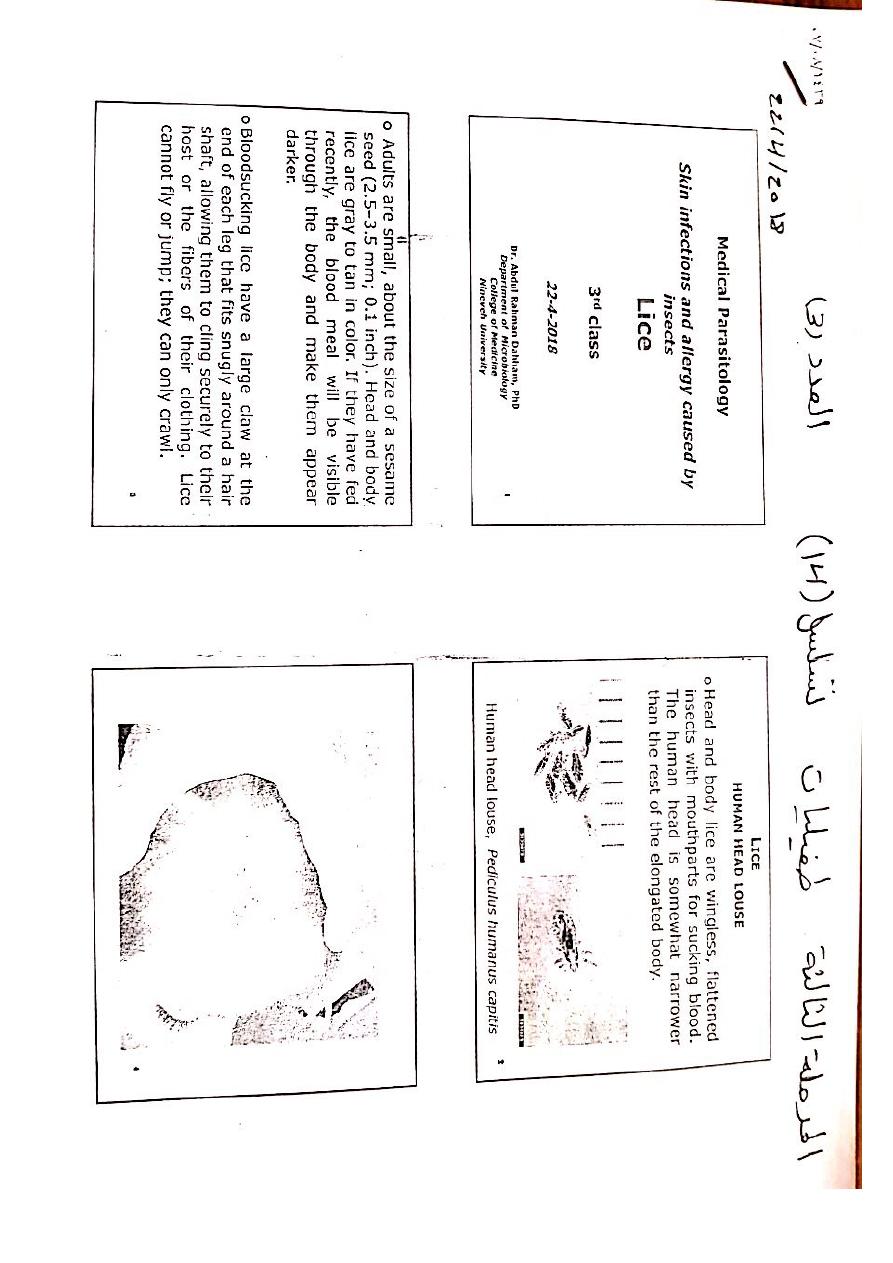 المرحلة الثالثة طفيليات تسلسل (14) العدد (3)
22/4/2018
Medical Parasitology
Skin infections and allergy caused by
insects
Lice
3rd class
22-4-2018
Dr. Abdul Rahman Dahham, PhD
Department of Microbiology
College of Medicine
Nineveh University
1
LICE
HUMAN HEAD LOUSE
o Head and body lice are wingless, flattened
insects with mouthparts for sucking blood.
The human head is somewhat narrower
than the rest of the elongated body.
Human head louse, Pediculus humanus capitis
2
o Adults are small, about the size of a sesame
seed (2.5–3.5 mm; 0.1 inch). Head and body
lice are gray to tan in color. If they have fed
recently, the blood meal will be visible
through the body and make them appear
darker.
o Bloodsucking lice have a large claw at the
end of each leg that fits snugly around a hair
shaft, allowing them to cling securely to their
host or the fibers of their clothing. Lice
cannot fly or jump; they can only crawl.
3
4